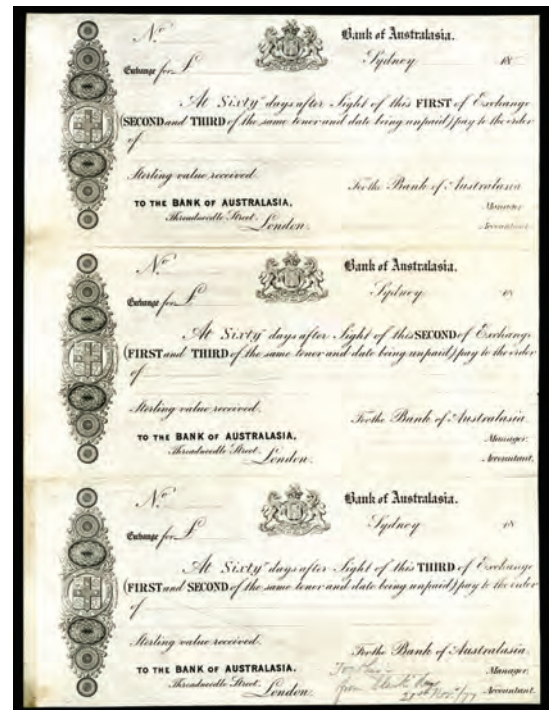 No.
Bank of Australasia.
Exchange for £
Sydney 18
At Sixty days after Sight of this FIRST of Exchange
(SECOND and THIRD of the same tenor and date being unpaid) pay to the order
of
Sterling value received.
For the Bank of Australasia
TO THE BANK OF AUSTRALASIA,
Manager
Threadneedle Street.
London.
Accountant.
No.
Bank of Australasia.
Exchange for £
Sydney 18
At Sixty days after Sight of this SECOND of Exchange
(FIRST and THIRD of the same tenor and date being unpaid) pay to the order
of
Sterling value received.
For the Bank of Australasia
TO THE BANK OF AUSTRALASIA,
Manager.
Threadneedle Street.
London.
Accountant.
No.
Bank of Australasia.
Exchange for £
Sydney 18
At Sixty days after Sight of this THIRD of Exchange
(FIRST and SECOND of the same tenor and date being unpaid) pay to the order
of
Sterling value received.
For the Bank of Australasia.
TO THE BANK OF AUSTRALASIA,
Manager.
Threadneedle Street.
from
London.
Nov/77
Accountant.